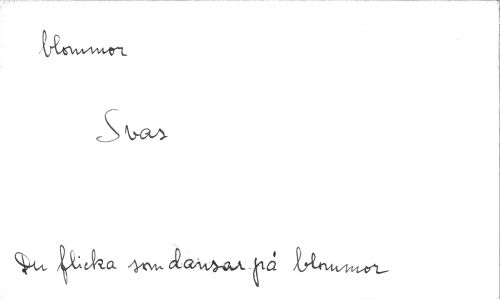 blommor
Svas
Du flicka som dansar på blommor